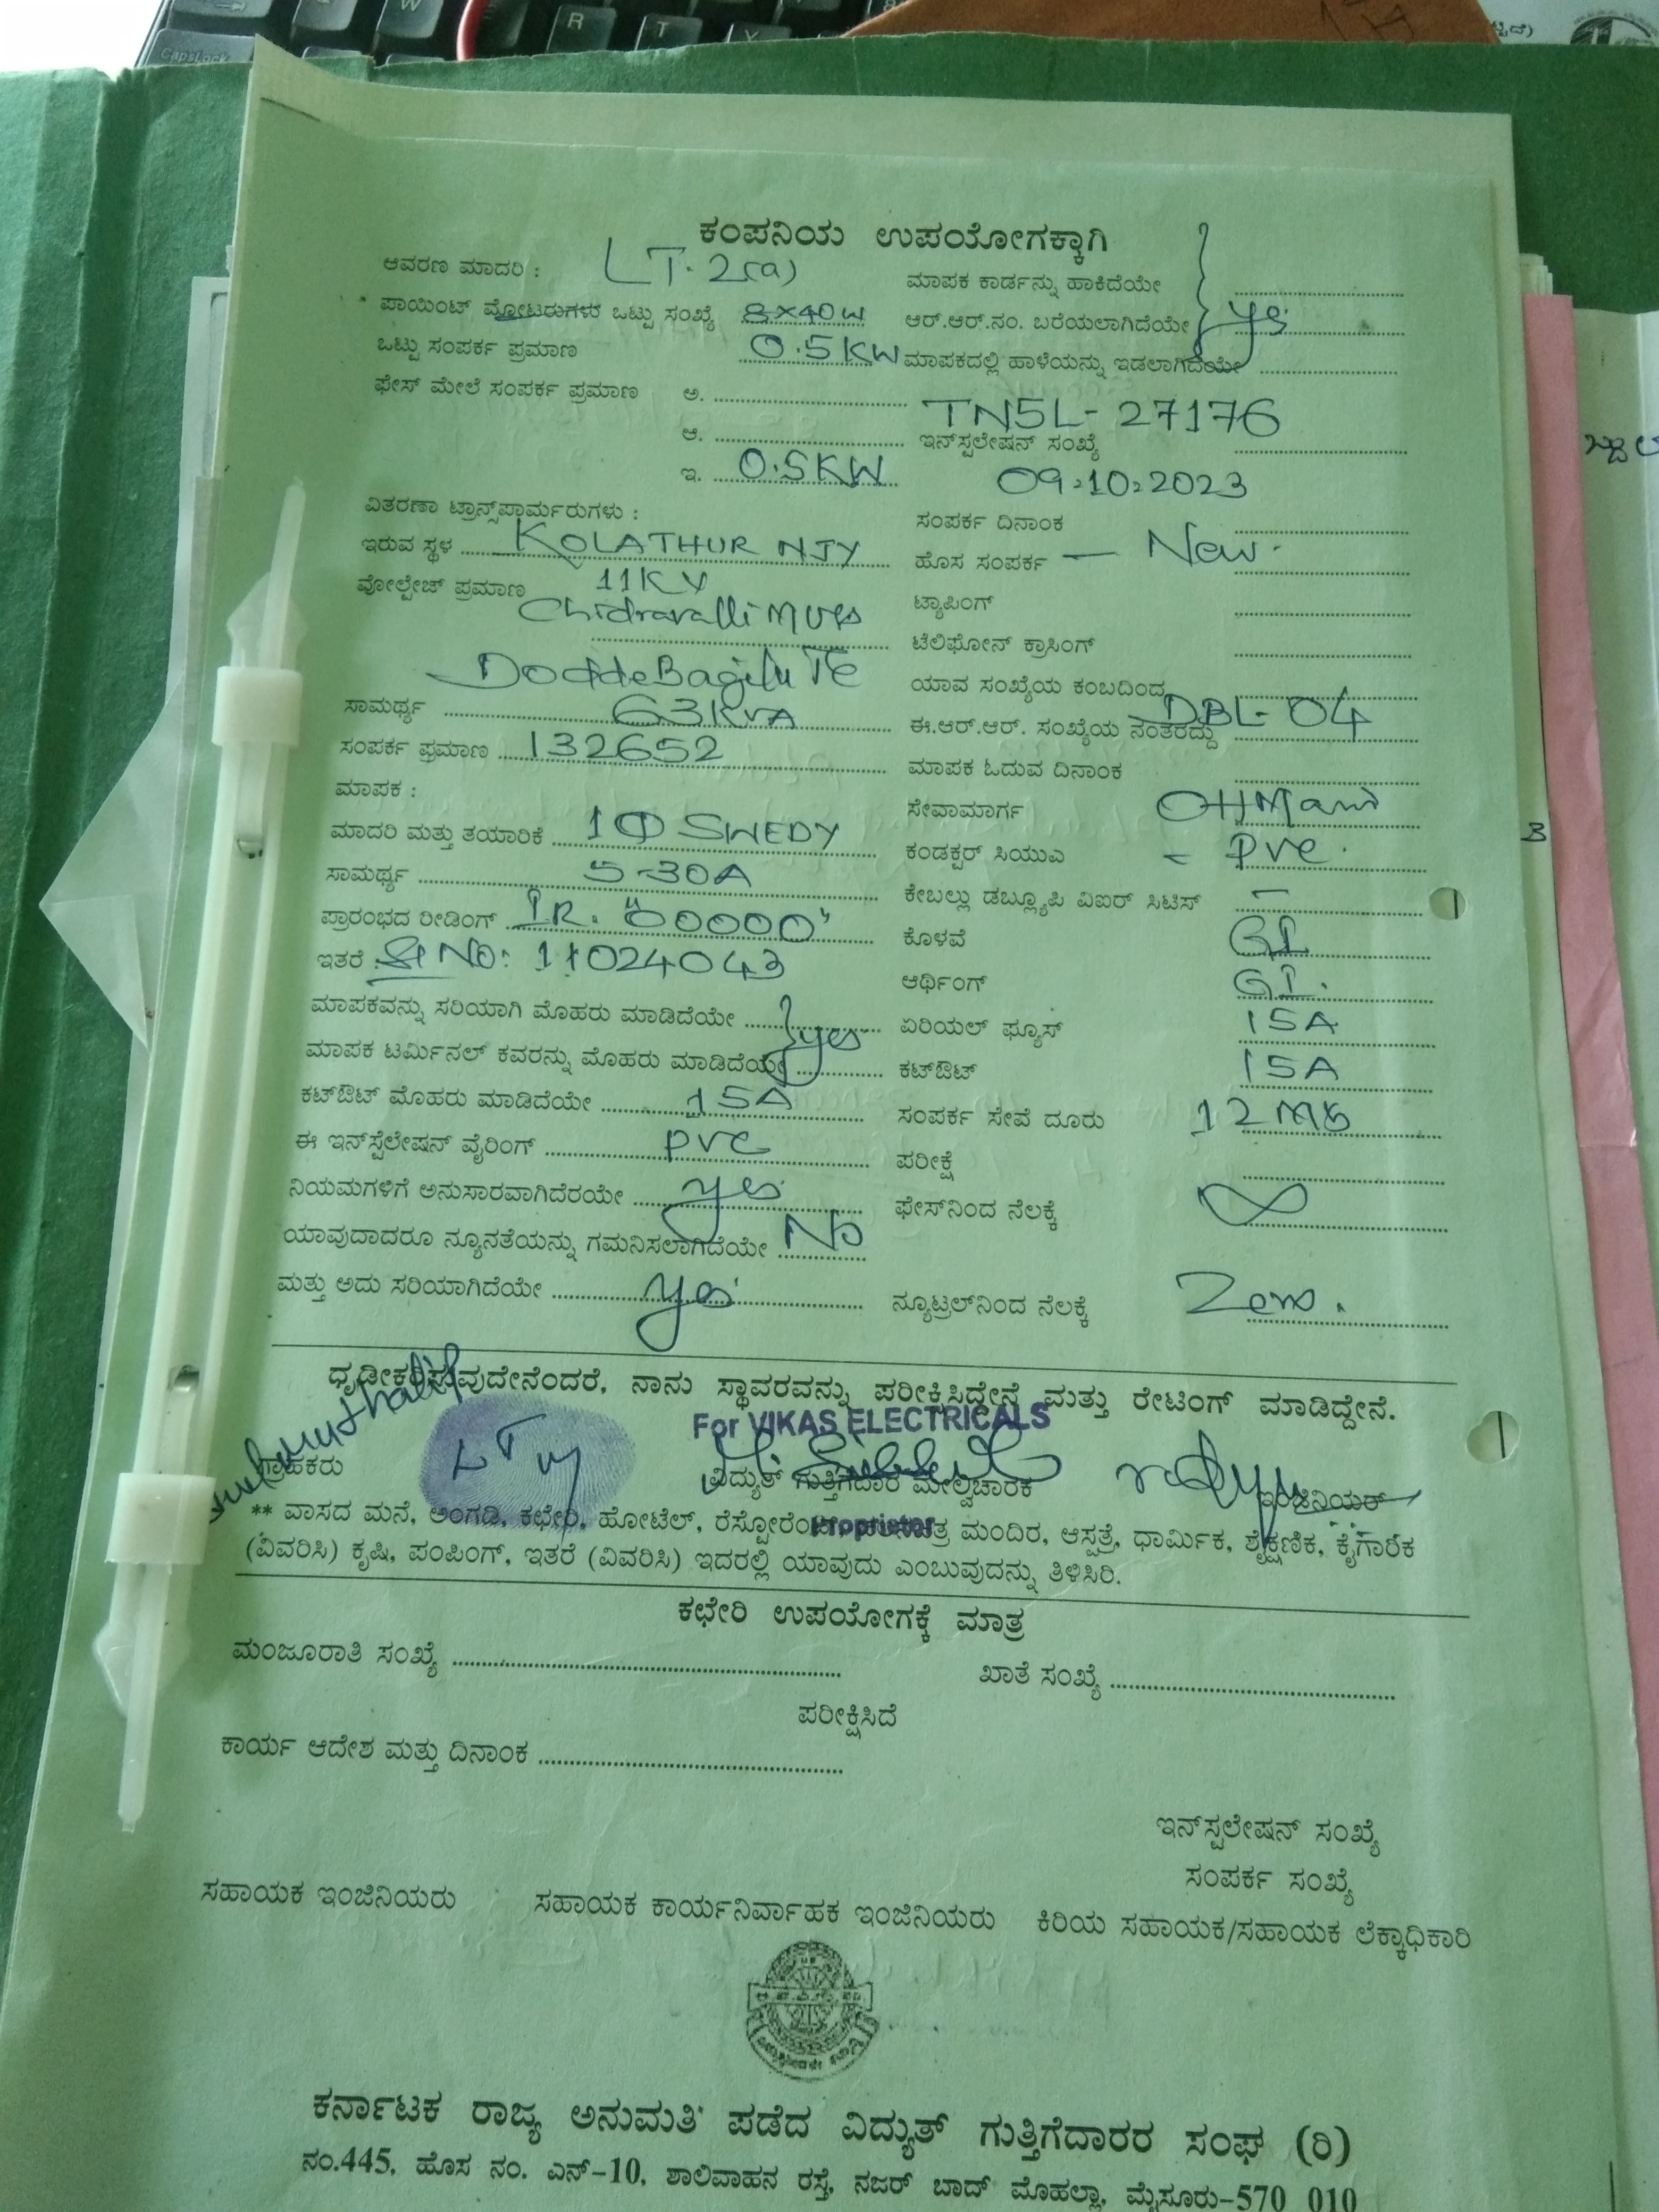 ಕಂಪನಿಯ ಉಪಯೋಗಕ್ಕಾಗಿ
ಆವರಣ ಮಾದರಿ : LT-2(a)
ಪಾಯಿಂಟ್ ಮೋಟರುಗಳು ಒಟ್ಟು ಸಂಖ್ಯೆ 8x40W
ಒಟ್ಟು ಸಂಪರ್ಕ ಪ್ರಮಾಣ 0.5KW
ಫೇಸ್ ಮೇಲೆ ಸಂಪರ್ಕ ಪ್ರಮಾಣ ಅ.
ಆ.
ಇ. 0.5KW
ವಿತರಣಾ ಟ್ರಾನ್ಸ್‌ಪಾರ್ಮರುಗಳು :
ಇರುವ ಸ್ಥಳ KOLATHUR NJY
ವೋಲ್ಟೇಜ್ ಪ್ರಮಾಣ 11KV
Chidravalli MUSS
DoddeBagilu TC
ಸಾಮರ್ಥ್ಯ 63KVA
ಸಂಪರ್ಕ ಪ್ರಮಾಣ 132652
ಮಾಪಕ :
ಮಾದರಿ ಮತ್ತು ತಯಾರಿಕೆ 1Φ SWEDY
ಸಾಮರ್ಥ್ಯ 5-30A
ಪ್ರಾರಂಭದ ರೀಡಿಂಗ್ IR. "00000"
ಇತರೆ : Sl NO: 11024043
ಮಾಪಕವನ್ನು ಸರಿಯಾಗಿ ಮೊಹರು ಮಾಡಿದೆಯೇ } yes
ಮಾಪಕ ಟರ್ಮಿನಲ್ ಕವರನ್ನು ಮೊಹರು ಮಾಡಿದೆಯೇ
ಕಟ್‌ಔಟ್ ಮೊಹರು ಮಾಡಿದೆಯೇ 15A
ಈ ಇನ್‌ಸ್ಟೆಲೇಷನ್ ವೈರಿಂಗ್ PVC
ನಿಯಮಗಳಿಗೆ ಅನುಸಾರವಾಗಿದೆರಯೇ yes
ಯಾವುದಾದರೂ ನ್ಯೂನತೆಯನ್ನು ಗಮನಿಸಲಾಗಿದೆಯೇ No
ಮತ್ತು ಅದು ಸರಿಯಾಗಿದೆಯೇ yes
ಮಾಪಕ ಕಾರ್ಡನ್ನು ಹಾಕಿದೆಯೇ
ಆರ್.ಆರ್.ನಂ. ಬರೆಯಲಾಗಿದೆಯೇ } yes
ಮಾಪಕದಲ್ಲಿ ಹಾಳೆಯನ್ನು ಇಡಲಾಗಿದೆಯೇ
TN5L-27176
ಇನ್‌ಸ್ಟಲೇಷನ್ ಸಂಖ್ಯೆ
09.10.2023
ಸಂಪರ್ಕ ದಿನಾಂಕ
ಹೊಸ ಸಂಪರ್ಕ — New.
ಟ್ಯಾಪಿಂಗ್
ಟೆಲಿಫೋನ್ ಕ್ರಾಸಿಂಗ್
ಯಾವ ಸಂಖ್ಯೆಯ ಕಂಬದಿಂದ
DBL-04
ಈ.ಆರ್.ಆರ್. ಸಂಖ್ಯೆಯ ನಂತರದ್ದು
ಮಾಪಕ ಓದುವ ದಿನಾಂಕ
ಸೇವಾಮಾರ್ಗ OH
ಕಂಡಕ್ಟರ್ ಸಿಯುಎ - PVC.
ಕೇಬಲ್ಲು ಡಬ್ಲ್ಯೂಪಿ ವಿಐಆರ್ ಸಿಟಿಸ್ –
ಕೊಳವೆ GI
ಆರ್ಥಿಂಗ್ GI.
ಏರಿಯಲ್ ಫ್ಯೂಸ್ 15A
ಕಟ್‌ಔಟ್ 15A
ಸಂಪರ್ಕ ಸೇವೆ ದೂರು 12 mts
ಪರೀಕ್ಷೆ
ಫೇಸ್‌ನಿಂದ ನೆಲಕ್ಕೆ ∞
ನ್ಯೂಟ್ರಲ್‌ನಿಂದ ನೆಲಕ್ಕೆ Zero.
ಧೃಡೀಕರಿಸುವುದೇನೆಂದರೆ, ನಾನು ಸ್ಥಾವರವನ್ನು ಪರೀಕ್ಷಿಸಿದ್ದೇನೆ ಮತ್ತು ರೇಟಿಂಗ್ ಮಾಡಿದ್ದೇನೆ.
For VIKAS ELECTRICALS
ಗ್ರಾಹಕರು ವಿದ್ಯುತ್ ಗುತ್ತಿಗೆದಾರ ಮೇಲ್ವಿಚಾರಕ ಇಂಜಿನಿಯರ್
Proprietor
** ವಾಸದ ಮನೆ, ಅಂಗಡಿ, ಕಛೇರಿ, ಹೋಟೆಲ್, ಮಂದಿರ, ಆಸ್ಪತ್ರೆ, ಧಾರ್ಮಿಕ, ಶೈಕ್ಷಣಿಕ, ಕೈಗಾರಿಕ
(ವಿವರಿಸಿ) ಕೃಷಿ, ಪಂಪಿಂಗ್, ಇತರೆ (ವಿವರಿಸಿ) ಇದರಲ್ಲಿ ಯಾವುದು ಎಂಬುವುದನ್ನು ತಿಳಿಸಿರಿ.
ಕಛೇರಿ ಉಪಯೋಗಕ್ಕೆ ಮಾತ್ರ
ಮಂಜೂರಾತಿ ಸಂಖ್ಯೆ
ಖಾತೆ ಸಂಖ್ಯೆ
ಪರೀಕ್ಷಿಸಿದೆ
ಕಾರ್ಯ ಆದೇಶ ಮತ್ತು ದಿನಾಂಕ
ಇನ್‌ಸ್ಟಲೇಷನ್ ಸಂಖ್ಯೆ
ಸಂಪರ್ಕ ಸಂಖ್ಯೆ
ಸಹಾಯಕ ಇಂಜಿನಿಯರು ಸಹಾಯಕ ಕಾರ್ಯನಿರ್ವಾಹಕ ಇಂಜಿನಿಯರು ಕಿರಿಯ ಸಹಾಯಕ/ಸಹಾಯಕ ಲೆಕ್ಕಾಧಿಕಾರಿ
ಕರ್ನಾಟಕ ರಾಜ್ಯ ಅನುಮತಿ ಪಡೆದ ವಿದ್ಯುತ್ ಗುತ್ತಿಗೆದಾರರ ಸಂಘ (ರಿ)
ನಂ.445, ಹೊಸ ನಂ. ಎನ್-10, ಶಾಲಿವಾಹನ ರಸ್ತೆ, ನಜರ್ ಬಾದ್ ಮೊಹಲ್ಲಾ, ಮೈಸೂರು-570 010